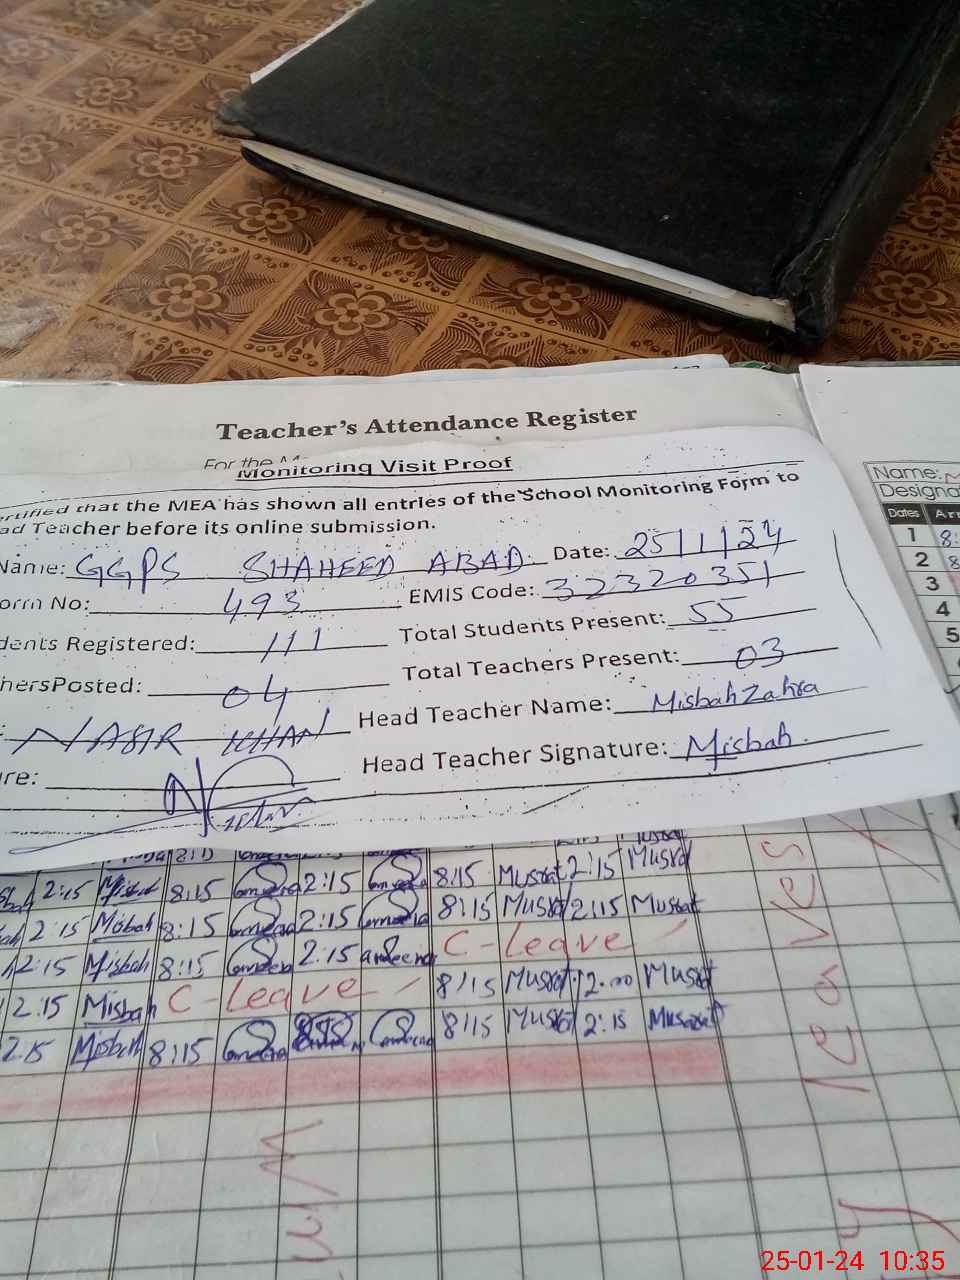 Teacher's Attendance Register
For the M
Monitoring Visit Proof
rtified that the MEA has shown all entries of the School Monitoring Form to
ad Teacher before its online submission.
Name: GGPS SHAHEED ABAD Date: 25/1/24
orm No: 493 EMIS Code: 32320351
dents Registered: 111 Total Students Present: 55
hersPosted: 04 Total Teachers Present: 03
: NASIR KHAN Head Teacher Name: Misbah Zahra
re: Head Teacher Signature: Misbah.
Name:
Designa
Dates Arr
1 8:
2 8
3
4
5
2:15 Misbah 8:15 2:15 8:15 Musrat 2:15 Musrat
2:15 Misbah 8:15 2:15 8:15 Musrat 2:15 Musrat
2:15 Misbah 8:15 2:15 ameena C-Leave
2:15 Misbah C-Leave 8:15 Musrat 12:00 Musrat
2:15 Misbah 8:15 8:15 Musrat 2:15 Musrat
leaves
25-01-24 10:35